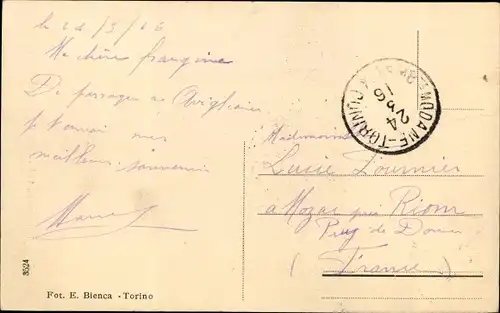 le 24/3/16
Ma chère frangine
De passage a Avigliana
je t'envoi mes
meilleurs souvenirs
MODANE-TORINO
24
Mademoiselle
Lucie Fournier
a Mozac près Riom
Puy de Dome
(France)
3524
Fot. E. Bienca - Torino